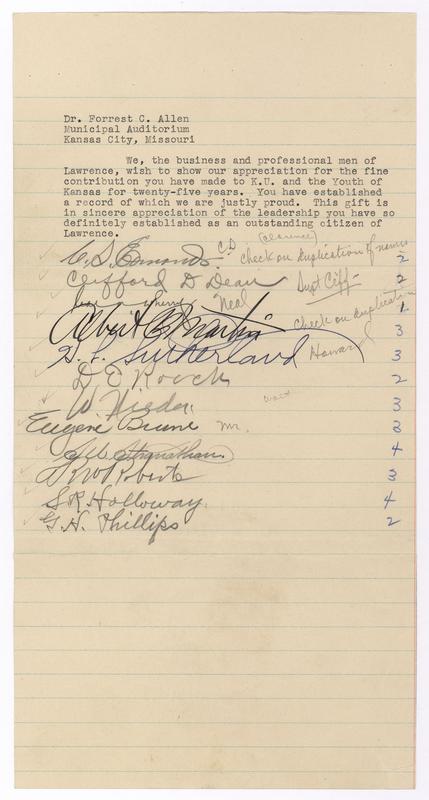 Dr. Forrest C. Allen
Municipal Auditorium
Kansas City, Missouri
We, the business and professional men of
Lawrence, wish to show our appreciation for the fine
contribution you have made to K.U. and the Youth of
Kansas for twenty-five years. You have established
a record of which we are justly proud. This gift is
in sincere appreciation of the leadership you have so
definitely established as an outstanding citizen of
Lawrence.
(Clarence)
C. S. Edmonds C.S check on duplication of names 2
Clifford D Dean 2
Neal 1
Albert B. Martin check on duplication 3
H. L. Sutherland Howard 3
D. E. Roock 2
W. Nieder. 3
Eugene Brune Mr. 3
4
Roberts 3
S. R. Holloway. 4
G. H. Phillips 2